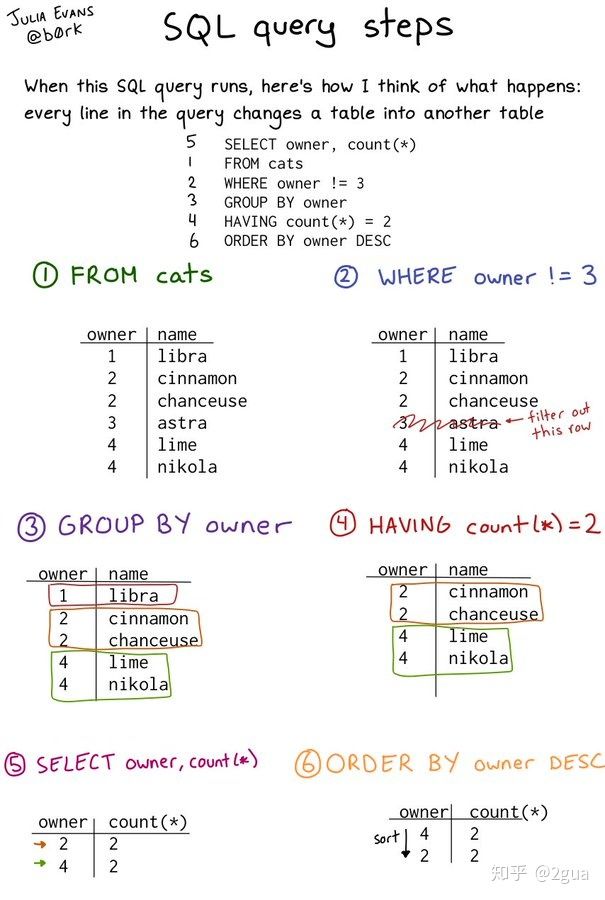 JULIA EVANS
@b0rk
SQL query steps
When this SQL query runs, here's how I think of what happens:
every line in the query changes a table into another table
5 SELECT owner, count(*)
1 FROM cats
2 WHERE owner != 3
3 GROUP BY owner
4 HAVING count(*) = 2
6 ORDER BY owner DESC
① FROM cats
owner name
1 libra
2 cinnamon
2 chanceuse
3 astra
4 lime
4 nikola
② WHERE owner != 3
owner name
1 libra
2 cinnamon
2 chanceuse
3 astra ← filter out
this row
4 lime
4 nikola
③ GROUP BY owner
owner name
1 libra
2 cinnamon
2 chanceuse
4 lime
4 nikola
④ HAVING count(*)=2
owner name
2 cinnamon
2 chanceuse
4 lime
4 nikola
⑤ SELECT owner, count(*)
owner count(*)
→ 2 2
→ 4 2
⑥ ORDER BY owner DESC
owner count(*)
sort ↓ 4 2
2 2
知乎 @2gua